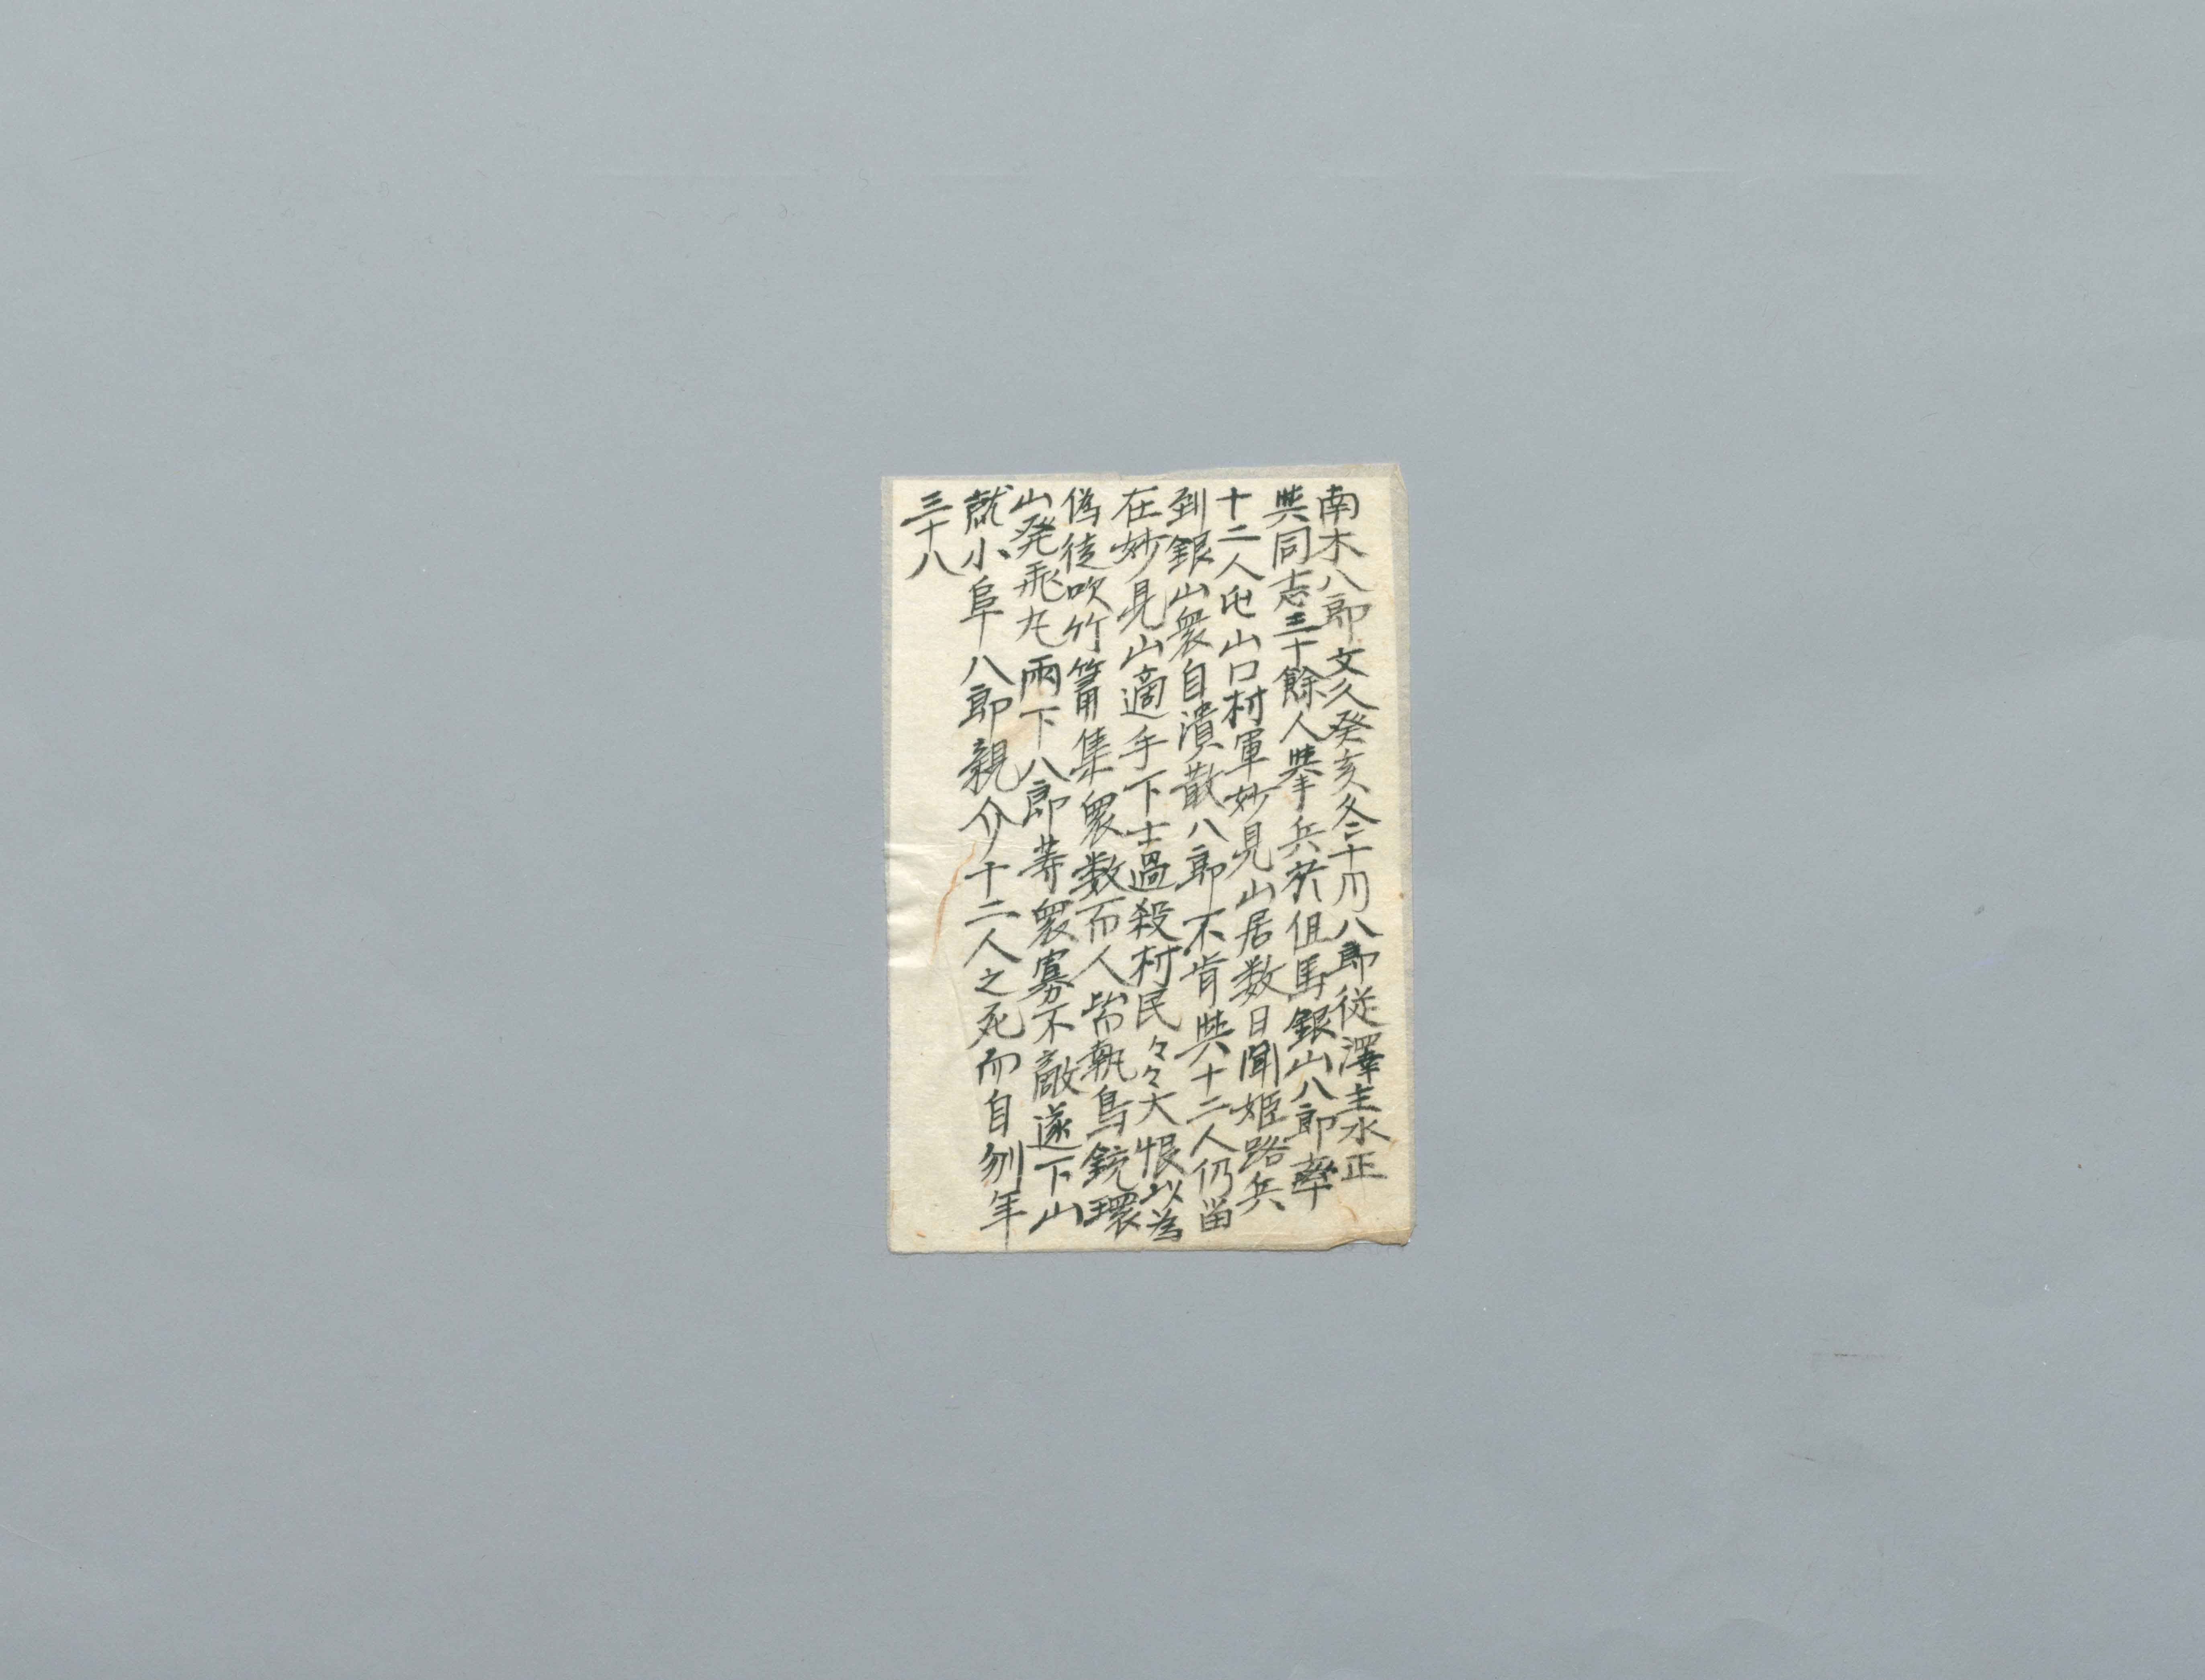 南木八郎文久癸亥冬十月八郎従澤主水正
與同志三十餘人挙兵於但馬銀山八郎率
十二人屯山口村軍妙見山居数日聞姫路兵
到銀山衆自潰散八郎不肯與十二人仍留
在妙見山適手下士過殺村民々々大恨以為
偽徒吹竹筩集衆数而人皆執鳥銃環
山発飛丸雨下八郎等衆寡不敵遂下山
就小阜八郎親介十二人之死而自刎年
三十八